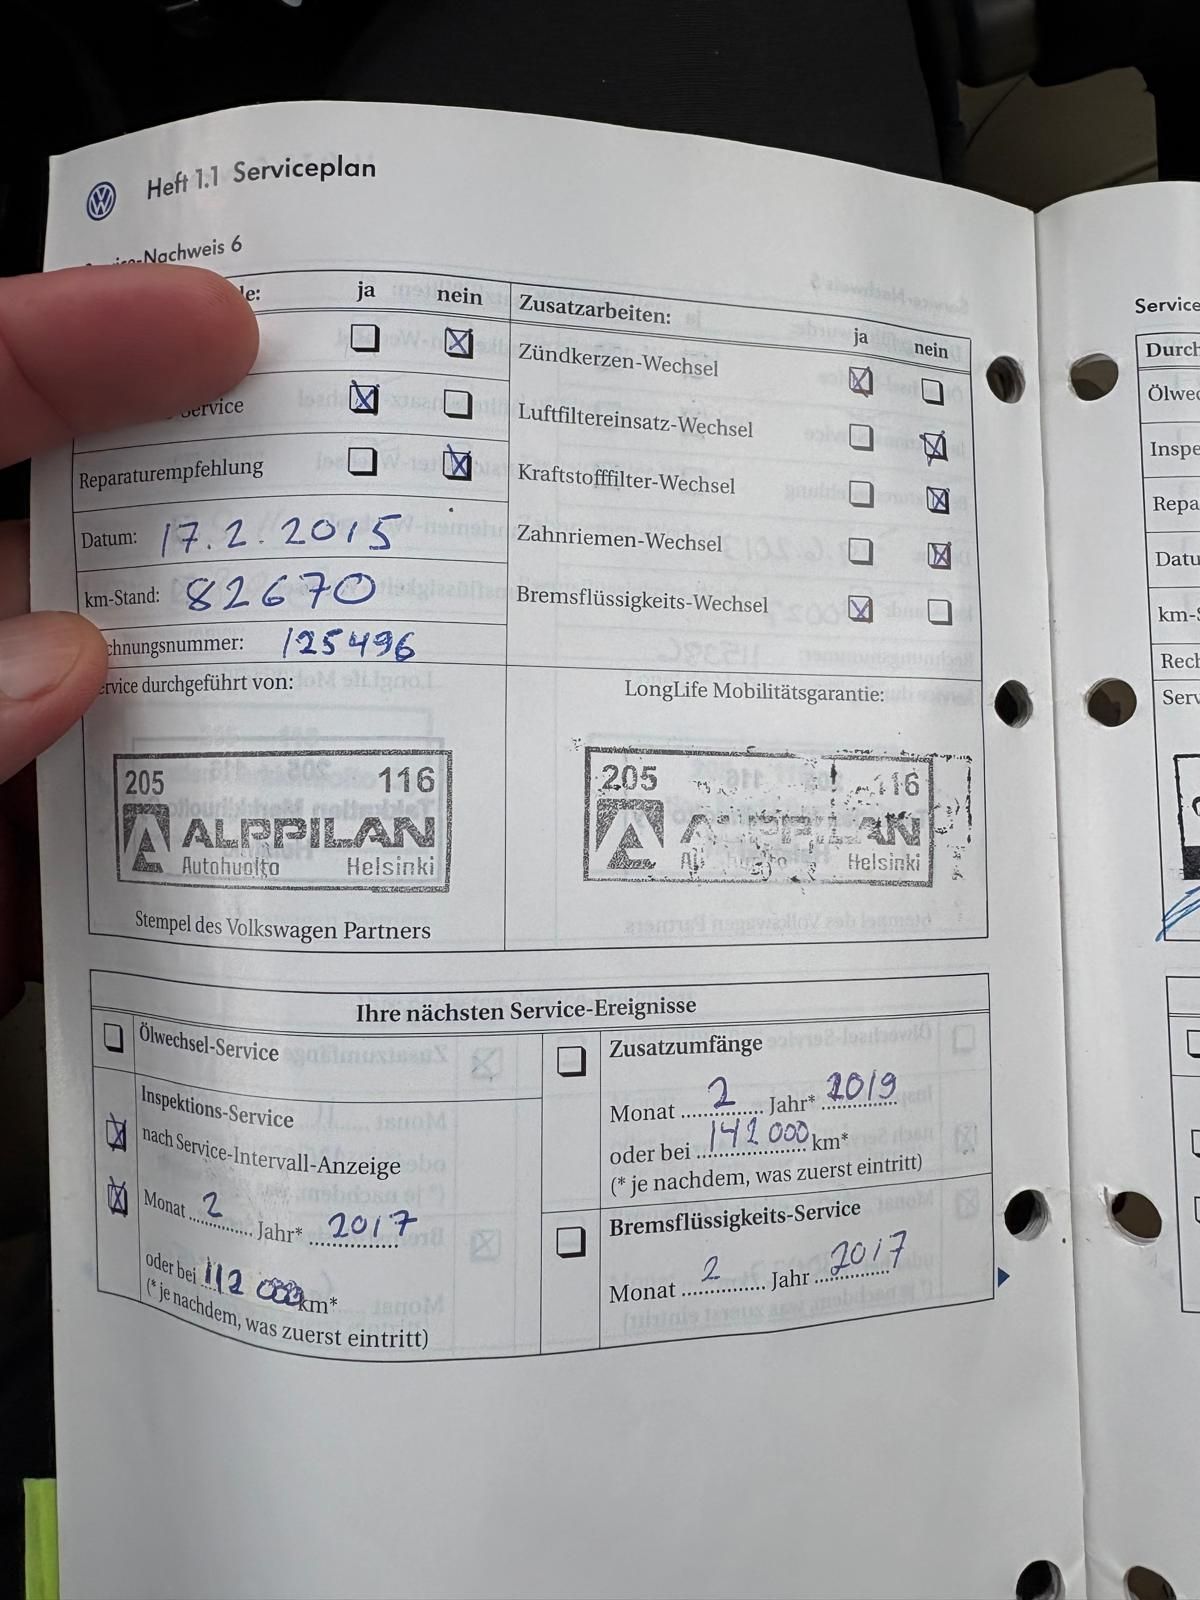 Heft 1.1 Serviceplan
Service-Nachweis 6
ja nein
Service
Reparaturempfehlung
Datum: 17.2.2015
km-Stand: 82670
chnungsnummer: 125496
ervice durchgeführt von:
205 116
ALPPILAN
Autohuolto Helsinki
Stempel des Volkswagen Partners
Zusatzarbeiten:
ja nein
Zündkerzen-Wechsel
Luftfiltereinsatz-Wechsel
Kraftstofffilter-Wechsel
Zahnriemen-Wechsel
Bremsflüssigkeits-Wechsel
LongLife Mobilitätsgarantie:
205 116
ALPPILAN
Autohuolto Helsinki
Ihre nächsten Service-Ereignisse
Ölwechsel-Service
Inspektions-Service
nach Service-Intervall-Anzeige
Monat 2 Jahr* 2017
oder bei 112 000 km*
(* je nachdem, was zuerst eintritt)
Zusatzumfänge
Monat 2 Jahr* 2019
oder bei 142 000 km*
(* je nachdem, was zuerst eintritt)
Bremsflüssigkeits-Service
Monat 2 Jahr 2017
Service
Durch
Ölwec
Inspe
Repa
Datu
km-S
Rech
Serv